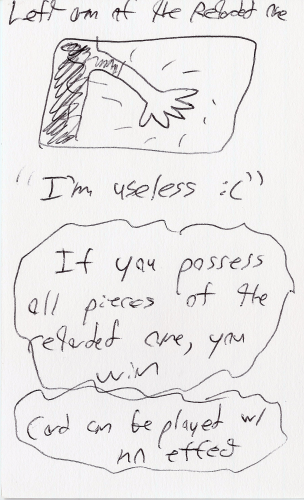 Left arm of the Retarded one
"I'm useless :C"
If you possess
all pieces of the
retarded one, you
win
Card can be played w/
no effect